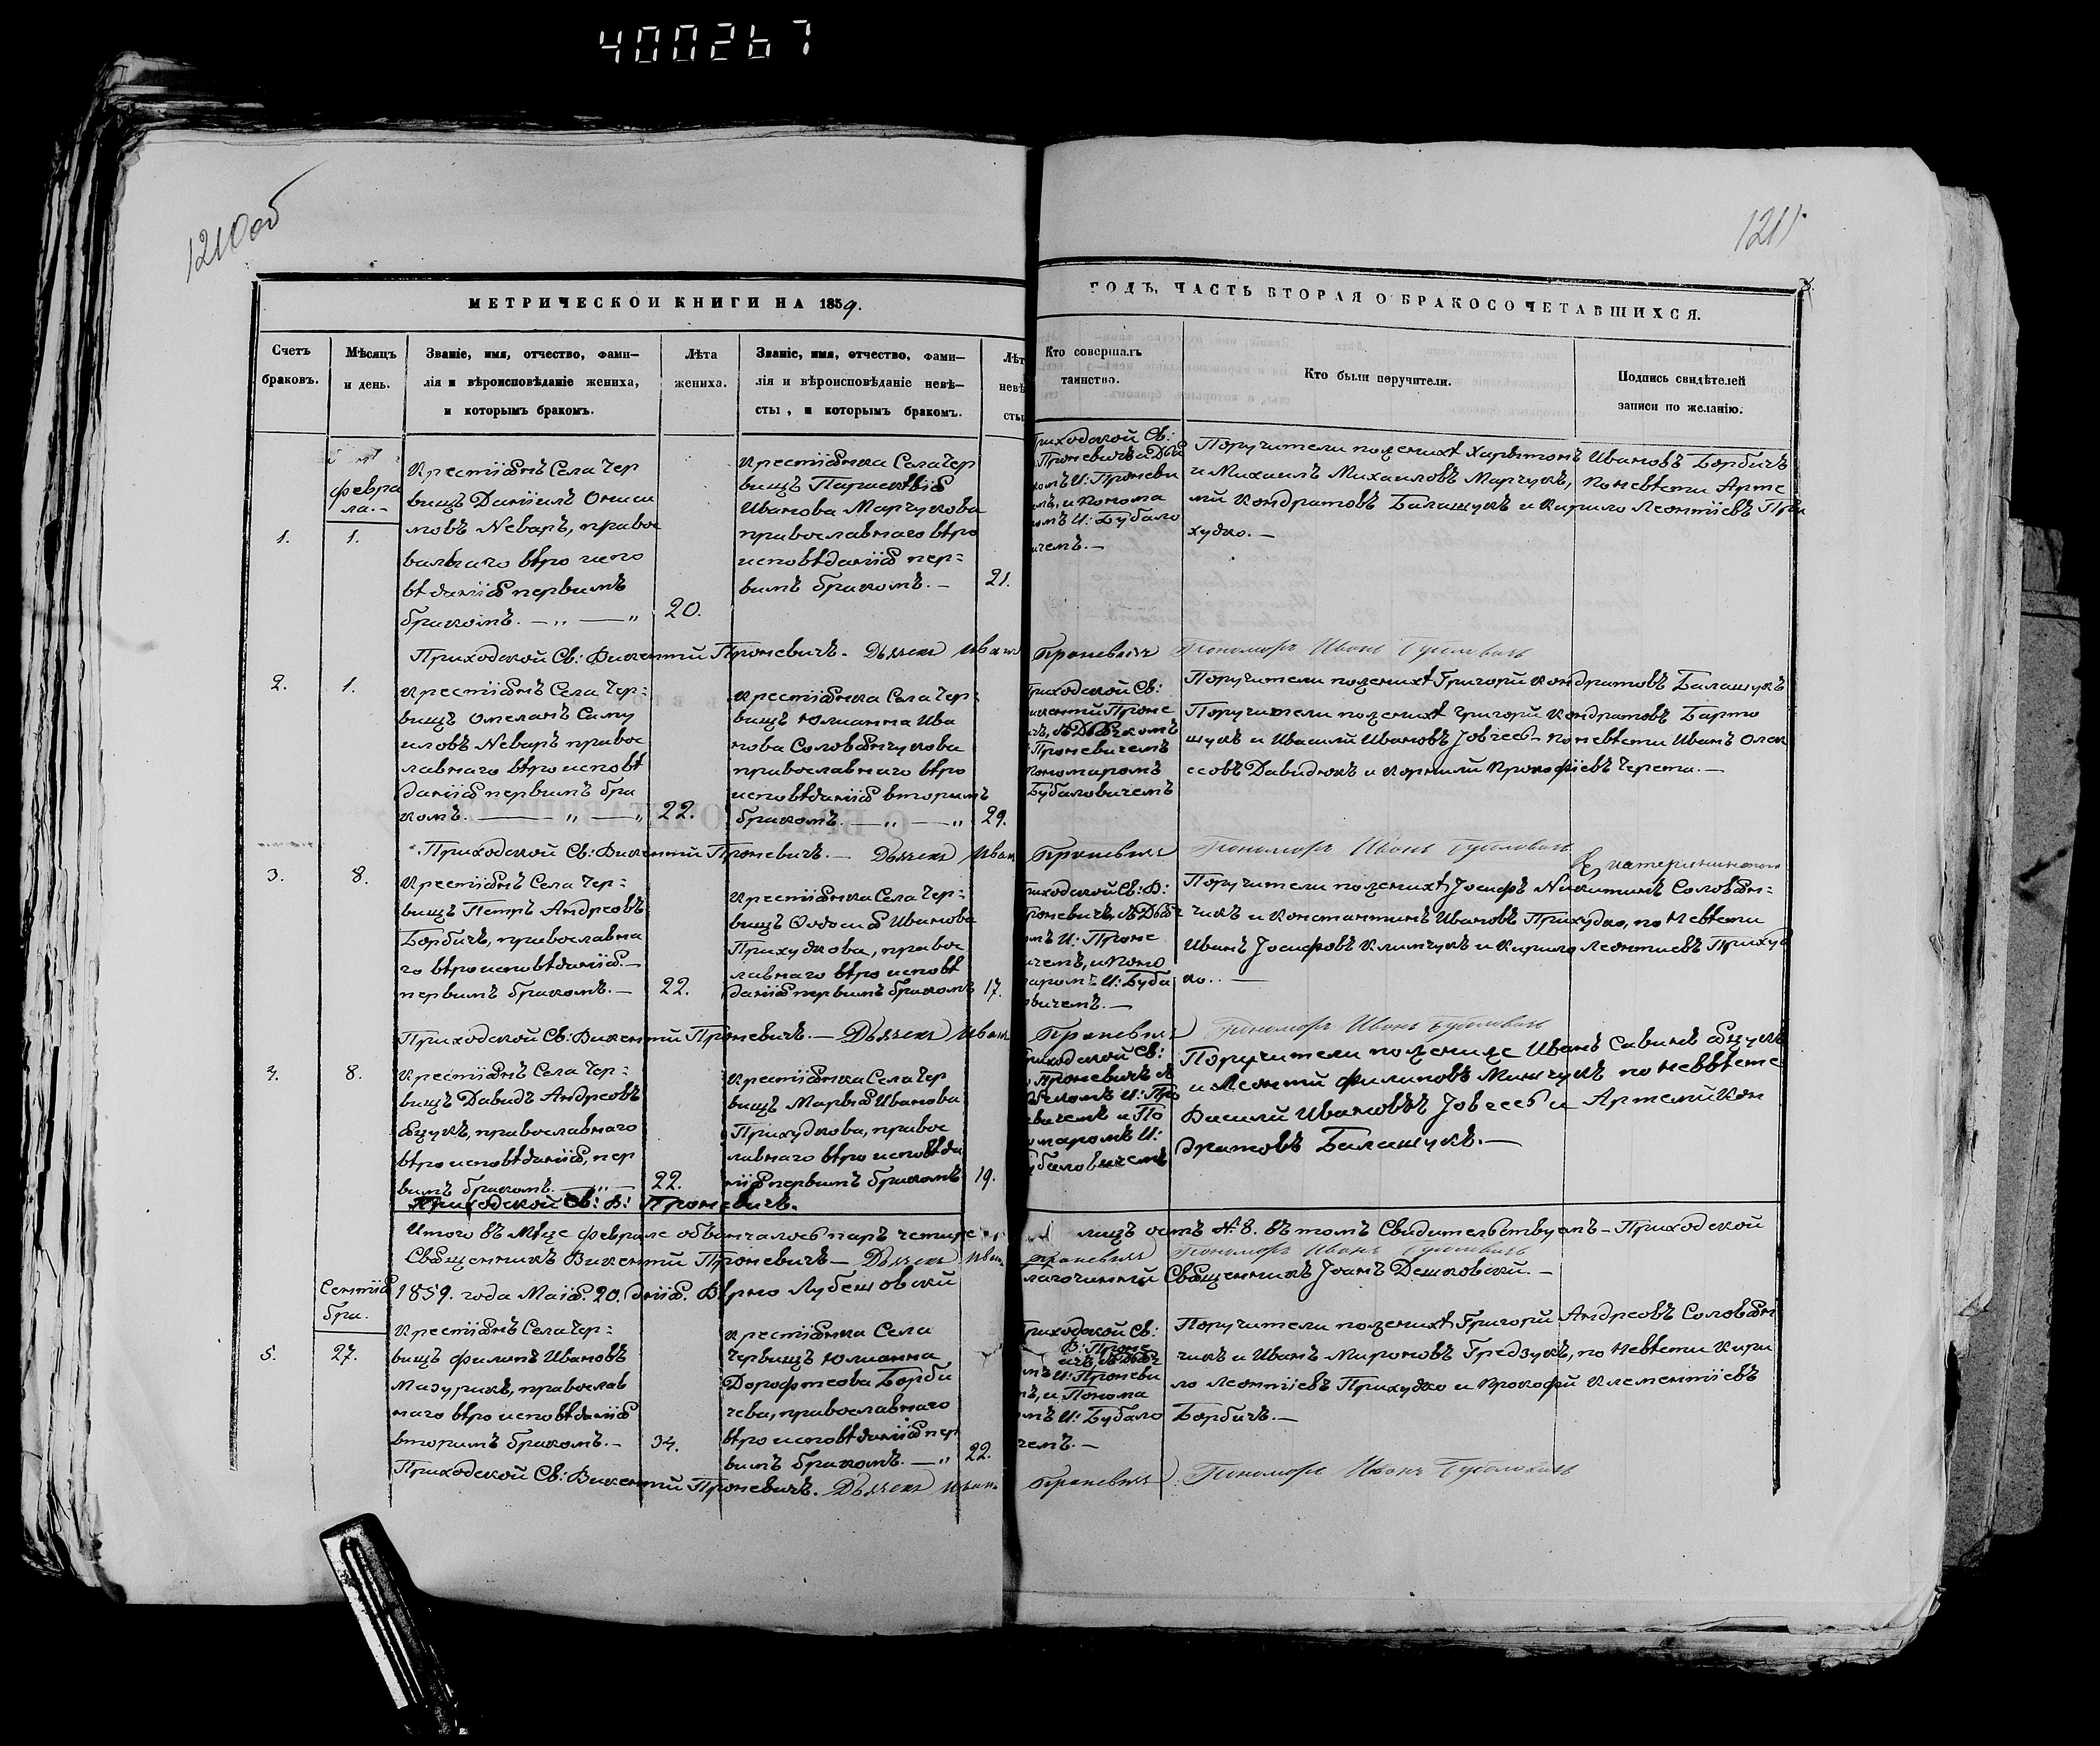 400267
1210об
1211
МЕТРИЧЕСКОЙ КНИГИ НА 1859.
ГОДЪ, ЧАСТЬ ВТОРАЯ О БРАКОСОЧЕТАВШИХСЯ.
Счетъ
браковъ.
Мѣсяцъ
и день.
Званіе, имя, отчество, фами—
лія и вѣроисповѣданіе жениха,
и которымъ бракомъ.
Лѣта
жениха.
Званіе, имя, отчество, фами—
лія и вѣроисповѣданіе невѣ—
сты, и которымъ бракомъ.
Лѣт
невѣ
сты
Кто совершалъ
таинство.
Кто были поручители.
Подпись свидѣтелей
записи по желанію.
февра
ла.-
1.
1.
Крестіянъ Села Чер
вищъ Даніилъ Ониси
мовъ Неваръ, православ
ваго вѣро испо
вѣданія первымъ
бракомъ. — „ — „
20.
Крестіянка Села Чер
вищъ Параскевія
Иванова Марчукова
православнаго вѣро
исповѣданія пер=
вымъ бракомъ.—
21.
Приходской Св:
Проневичъ и Дья
комъ И: Проневи
мъ, и Понома
омъ И: Бубало
ичемъ.—
Поручители по женихѣ Харытонъ Ивановъ Борбичъ
и Михаилъ Михаиловъ Марчукъ, по невѣсти Арте
мій Кондратовъ Балашукъ и Кирило Леонтіевъ При
худко.—
Приходской Св: Викентій Проневичъ. Дьячек Иванъ Проневичъ Пономарь Иванъ Бубалович
2.
1.
Крестіянъ Села Чер=
вищъ Омелянъ Саму
иловъ Неваръ правос
лавнаго вѣро исповѣ
данія первымъ бра
комъ. — „ — „
22.
Крестіянка Села Чер=
вищъ Юлианна Ива
нова Соловянчукова
православнаго вѣро
исповѣданія вторымъ
бракомъ. — „ — „
29.
Приходской Св:
икентій Проне
ъ, съ Дьячкомъ
Проневичемъ
Пономаромъ
Бубаловичемъ
Поручители по женихѣ Григорій Кондратовъ Балашукъ
Поручители по женихѣ Григорій Кондратовъ Барто
шукъ и Василій Ивановъ Іовчев - по невѣсти Иванъ Олек
ссовъ Давидюкъ и Корнилій Прокофіевъ Черста.—
Приходской Св: Викентій Проневичъ.— Дьячек Иван Проневичъ Пономарь Иванъ Бубалович
3.
8.
Крестіянъ Села Чер=
вищъ Петръ Андреовъ
Борбичъ, православна
го вѣроисповѣданія.—
первымъ бракомъ.—
22.
Крестіянка Села Чер=
вищъ Ѳодосия Иванова
Прихудкова, правос
лавнаго вѣро исповѣ
данія первымъ бракомъ
17.
риходской Св: В:
роневичъ, съ Дьяч
омъ И: Проне
ичемъ, и Поно
аромъ И: Буба
овичемъ.—
Поручители по женихѣ Іосифъ Никитинъ Соловян=
чикъ и Константинъ Ивановъ Прихудко, по Невѣсти
Иванъ Іосифовъ Климчукъ и Кирило Леонтиевъ Прихуд
ко..—
Приходской Св: Викентій Проневичъ.— Дьячек Иванъ Проневичъ Пономарь Иванъ Бубалович
4.
8.
Крестіянъ Села Чер=
вищъ Давидъ Андреовъ
Яцукъ, православнаго
вѣро исповѣданія, пер
вымъ бракомъ. — „ —
22.
Крестіянка Села Чер
вищъ Марыя Иванова
Прихудкова, правос
лавнаго вѣро исповѣда
нія первымъ бракомъ
19.
риходской Св:
Проневичъ съ
ячкомъ И: Про
евичемъ и По
омаромъ И:
убаловичемъ
Поручители по женихе Иванъ Савинъ Яцукъ
и Леонтій Филиповъ Минчукъ по Неввѣсте
Василій Ивановъ Іовчев и Артемій Кон
дратовъ Балашукъ.—
Приходской Св: В: Проневичъ.
Итого въ Мце Феврале обвѣнчалось паръ четыре лицъ остъ №. 8. въ томъ Свидительствуемъ - Приходской
Священникъ Викентій Проневичъ — Дьячек Иван Проневичъ Пономарь Иванъ Бубалович
1859. года Маія. 20. дніа. Вѣрно Лубешовскій лагочинный Священникъ Іоанъ Дешковскій.—
Сентія
бра.
5.
27.
Крестіянъ Села Чер=
вищъ Филипъ Ивановъ
Мазурикъ, православ
наго вѣро исповѣданія
вторымъ бракомъ.—
34.
Крестіянка Села
Червищъ Юлианна
Дорофтеова Борби
чева, православнаго
вѣро исповѣданія пер
вимъ бракомъ. — „
22.
риходской Св:
В: Проне
ичъ съ Дьяч
мъ И: Проневи
ъ, и Понома
мъ И: Бубало
чемъ.—
Поручители по женихѣ Григорій Андреовъ Соловян
чикъ и Иванъ Мироновъ Гредзукъ, по Невѣсти Кири
ло Леонтіевъ Прихудко и Прокофій Клементіевъ
Борбичъ.—
Приходской Св: Викентій Проневичъ. Дьячек Иванъ Проневичъ Пономарь Иванъ Бубалович